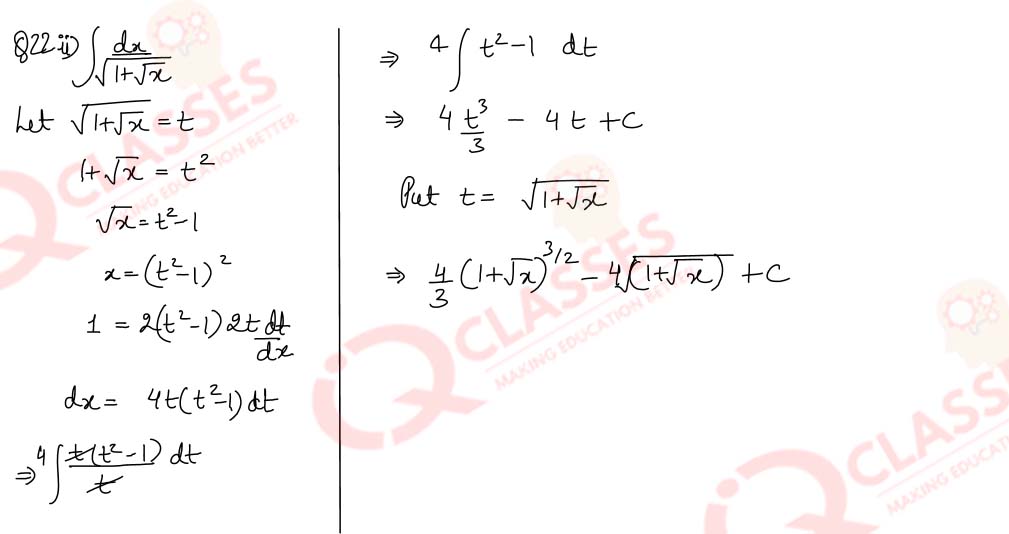 Q22.ii) ∫ dx/√(1+√x)
Let √(1+√x) = t
1+√x = t²
√x = t²-1
x = (t²-1)²
1 = 2(t²-1) 2t dt/dx
dx = 4t(t²-1) dt
⇒ 4 ∫ t(t²-1)/t dt
⇒ 4 ∫ t²-1 dt
⇒ 4 t³/3 - 4t + C
Put t = √(1+√x)
⇒ 4/3 (1+√x)^3/2 - 4√(1+√x) + C
iQ CLASSES
MAKING EDUCATION BETTER
iQ CLASSES
MAKING EDUCATION BETTER
CLASSES
MAKING EDUCATION